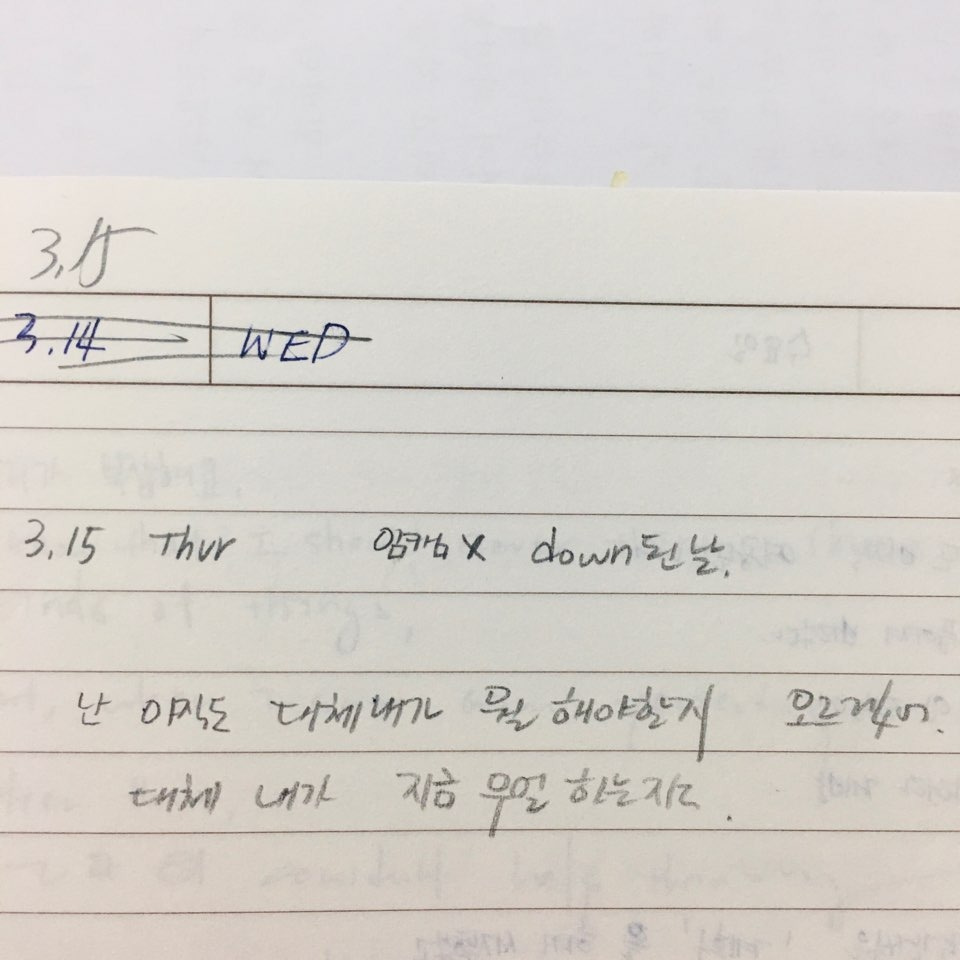 3.15
3.14 WED
3.15 Thur 암캠 X down된 날.
난 아직도 대체 내가 뭘 해야할지 모르겠어.
대체 내가 지금 무얼 하는지도.